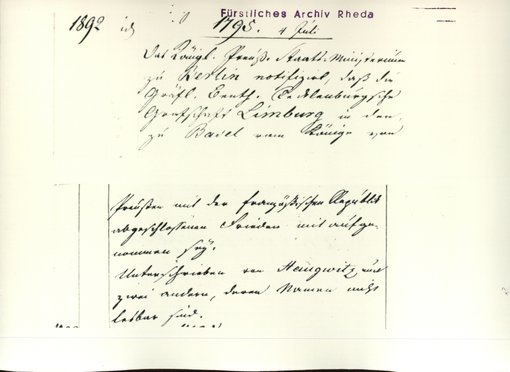 Fürstliches Archiv Rheda
189² id 1795. 4 Juli
Das Königl. Preuß. Staats-Ministerium
zu Berlin notifizirt, daß die
Gräfl. Benth. Tecklenburgsche
Grafschaft Limburg in den,
zu Basel vom Könige von
Preußen mit der französischen Republik
abgeschlossenen Frieden mit aufge-
nommen sey.
Unterschrieben von Haugwitz und
zwei andern, deren Namen nicht
lesbar sind.